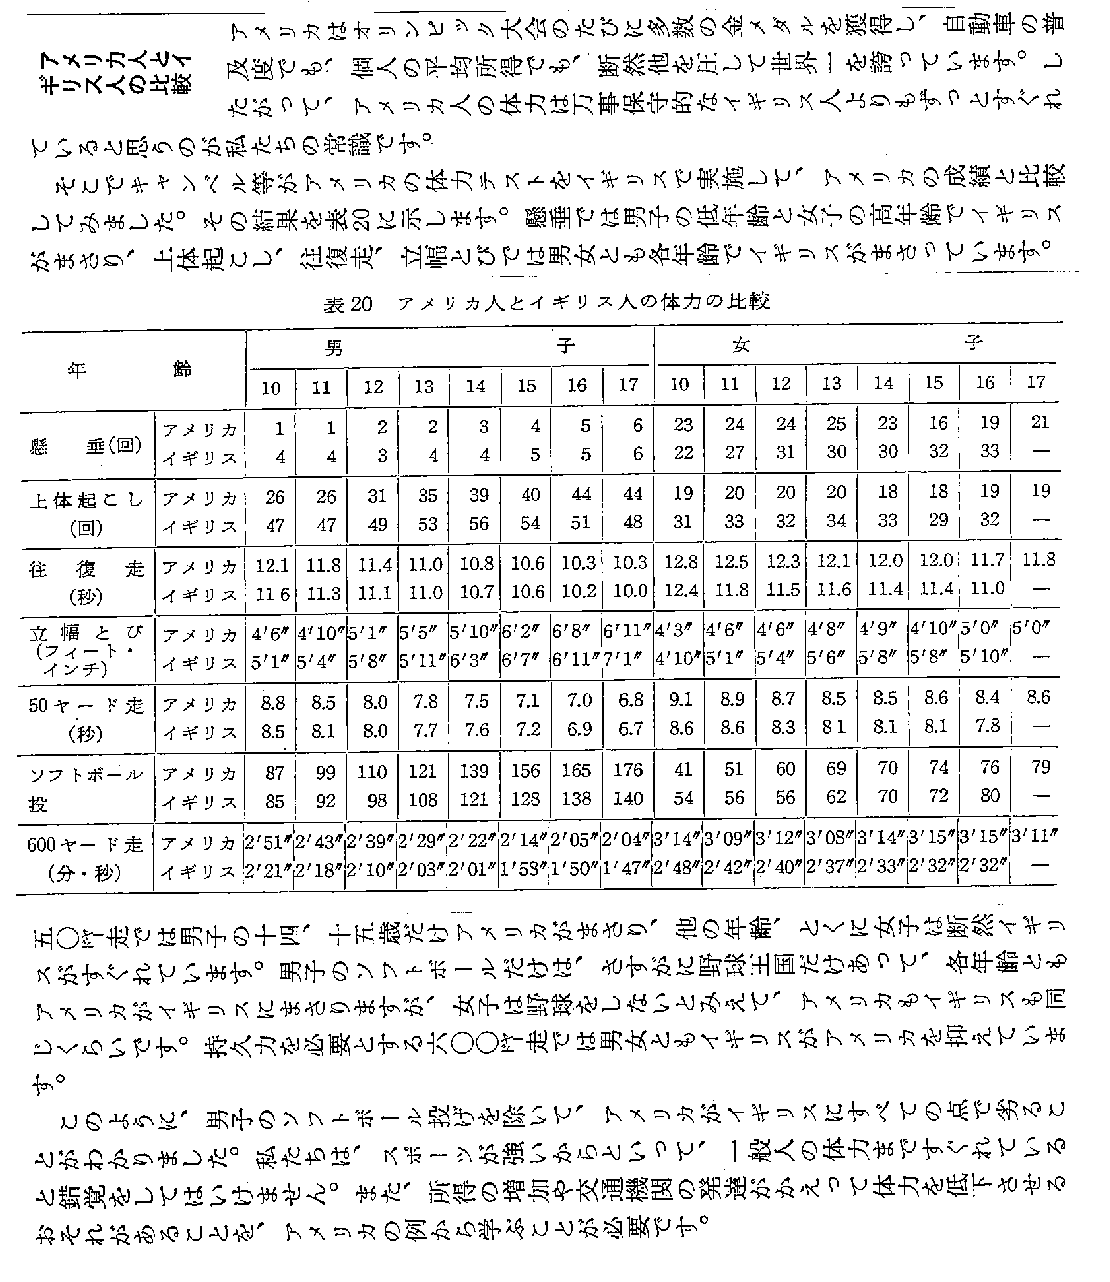 アメリカ人とイ
ギリス人の比較
アメリカはオリンピック大会のたびに多数の金メダルを獲得し、自動車の普
及度でも、個人の平均所得でも、断然他を圧して世界一を誇っています。し
たがって、アメリカ人の体力は万事保守的なイギリス人よりもずっとすぐれ
ていると思うのが私たちの常識です。
そこでキャンベル等がアメリカの体力テストをイギリスで実施して、アメリカの成績と比較
してみました。その結果を表20に示します。懸垂では男子の低年齢と女子の高年齢でイギリス
がまさり、上体起こし、往復走、立幅とびでは男女とも各年齢でイギリスがまさっています。
表20 アメリカ人とイギリス人の体力の比較
年 齢 男 子 女 子
10 11 12 13 14 15 16 17 10 11 12 13 14 15 16 17
懸 垂(回) アメリカ 1 1 2 2 3 4 5 6 23 24 24 25 23 16 19 21
イギリス 4 4 3 4 4 5 5 6 22 27 31 30 30 32 33 —
上体起こし アメリカ 26 26 31 35 39 40 44 44 19 20 20 20 18 18 19 19
(回) イギリス 47 47 49 53 56 54 51 48 31 33 32 34 33 29 32 —
往復走 アメリカ 12.1 11.8 11.4 11.0 10.8 10.6 10.3 10.3 12.8 12.5 12.3 12.1 12.0 12.0 11.7 11.8
(秒) イギリス 11 6 11.3 11.1 11.0 10.7 10.6 10.2 10.0 12.4 11.8 11.5 11.6 11.4 11.4 11.0 —
立幅とび アメリカ 4′6″ 4′10″ 5′1″ 5′5″ 5′10″ 6′2″ 6′8″ 6′11″ 4′3″ 4′6″ 4′6″ 4′8″ 4′9″ 4′10″ 5′0″ 5′0″
(フィート・
インチ) イギリス 5′1″ 5′4″ 5′8″ 5′11″ 6′3″ 6′7″ 6′11″ 7′1″ 4′10″ 5′1″ 5′4″ 5′6″ 5′8″ 5′8″ 5′10″ —
50ヤード走 アメリカ 8.8 8.5 8.0 7.8 7.5 7.1 7.0 6.8 9.1 8.9 8.7 8.5 8.5 8.6 8.4 8.6
(秒) イギリス 8.5 8.1 8.0 7.7 7.6 7.2 6.9 6.7 8.6 8.6 8.3 8 1 8.1 8.1 7.8 —
ソフトボール アメリカ 87 99 110 121 139 156 165 176 41 51 60 69 70 74 76 79
投 イギリス 85 92 98 108 121 128 138 140 54 56 56 62 70 72 80 —
600ヤード走 アメリカ 2′51″ 2′43″ 2′39″ 2′29″ 2′22″ 2′14″ 2′05″ 2′04″ 3′14″ 3′09″ 3′12″ 3′08″ 3′14″ 3′15″ 3′15″ 3′11″
(分・秒) イギリス 2′21″ 2′18″ 2′10″ 2′03″ 2′01″ 1′53″ 1′50″ 1′47″ 2′48″ 2′42″ 2′40″ 2′37″ 2′33″ 2′32″ 2′32″ —
五〇ヤード走では男子の十四、十五歳だけアメリカがまさり、他の年齢、とくに女子は断然イギリ
スがすぐれています。男子のソフトボールだけは、さすがに野球王国だけあって、各年齢とも
アメリカがイギリスにまさりますが、女子は野球をしないとみえて、アメリカもイギリスも同
じくらいです。持久力を必要とする六〇〇ヤード走では男女ともイギリスがアメリカを抑えていま
す。
このように、男子のソフトボール投げを除いて、アメリカがイギリスにすべての点で劣るこ
とがわかりました。私たちは、スポーツが強いからといって、一般人の体力まですぐれている
と錯覚をしてはいけません。また、所得の増加や交通機関の発達がかえって体力を低下させる
おそれがあることを、アメリカの例から学ぶことが必要です。